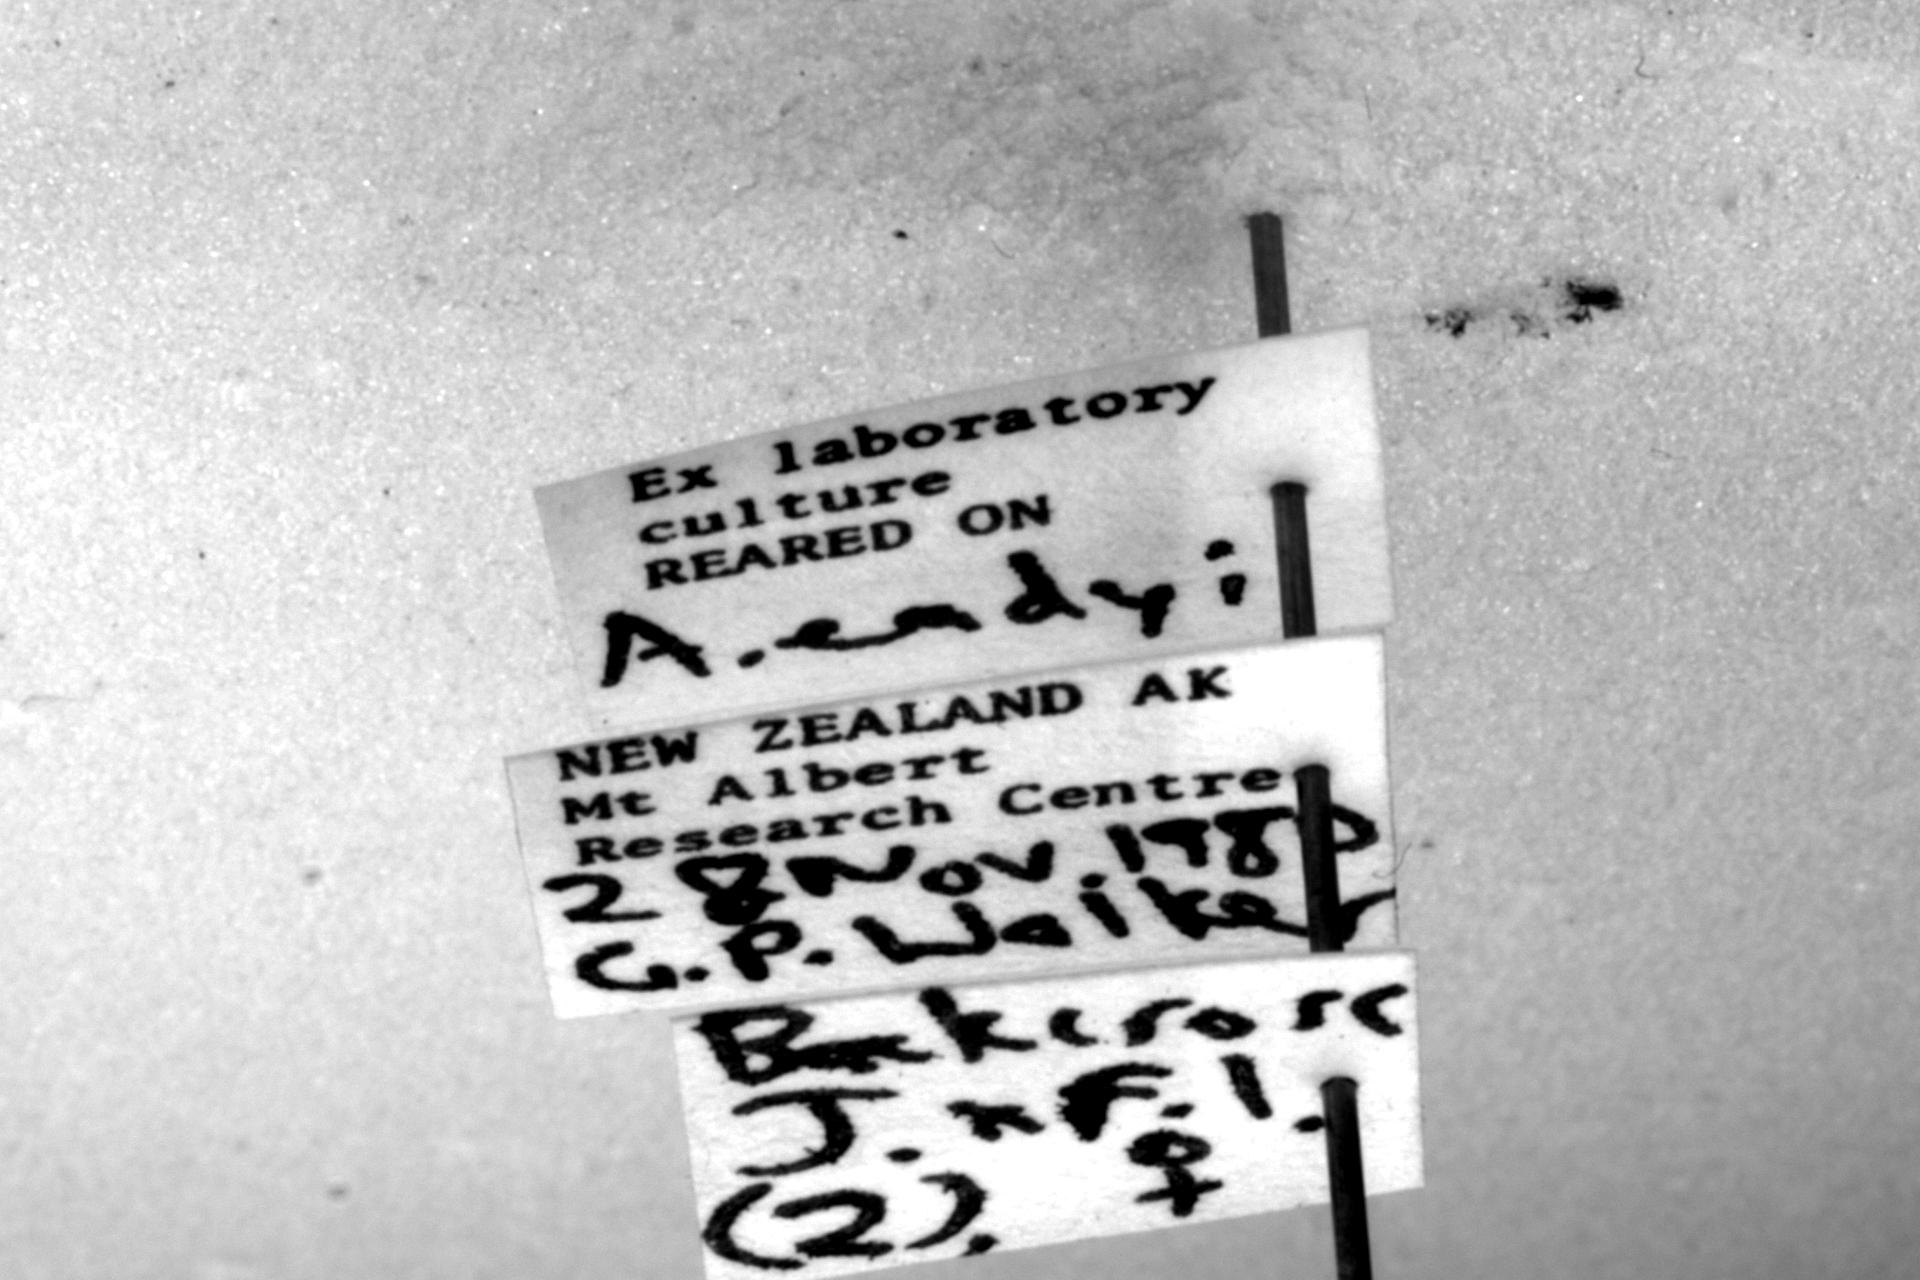 Ex laboratory
culture
REARED ON
A. eadyi
NEW ZEALAND AK
Mt Albert
Research Centre
28 Nov 1980
G.P. Walker
Backcross
J. x F.1.
(2). ♀